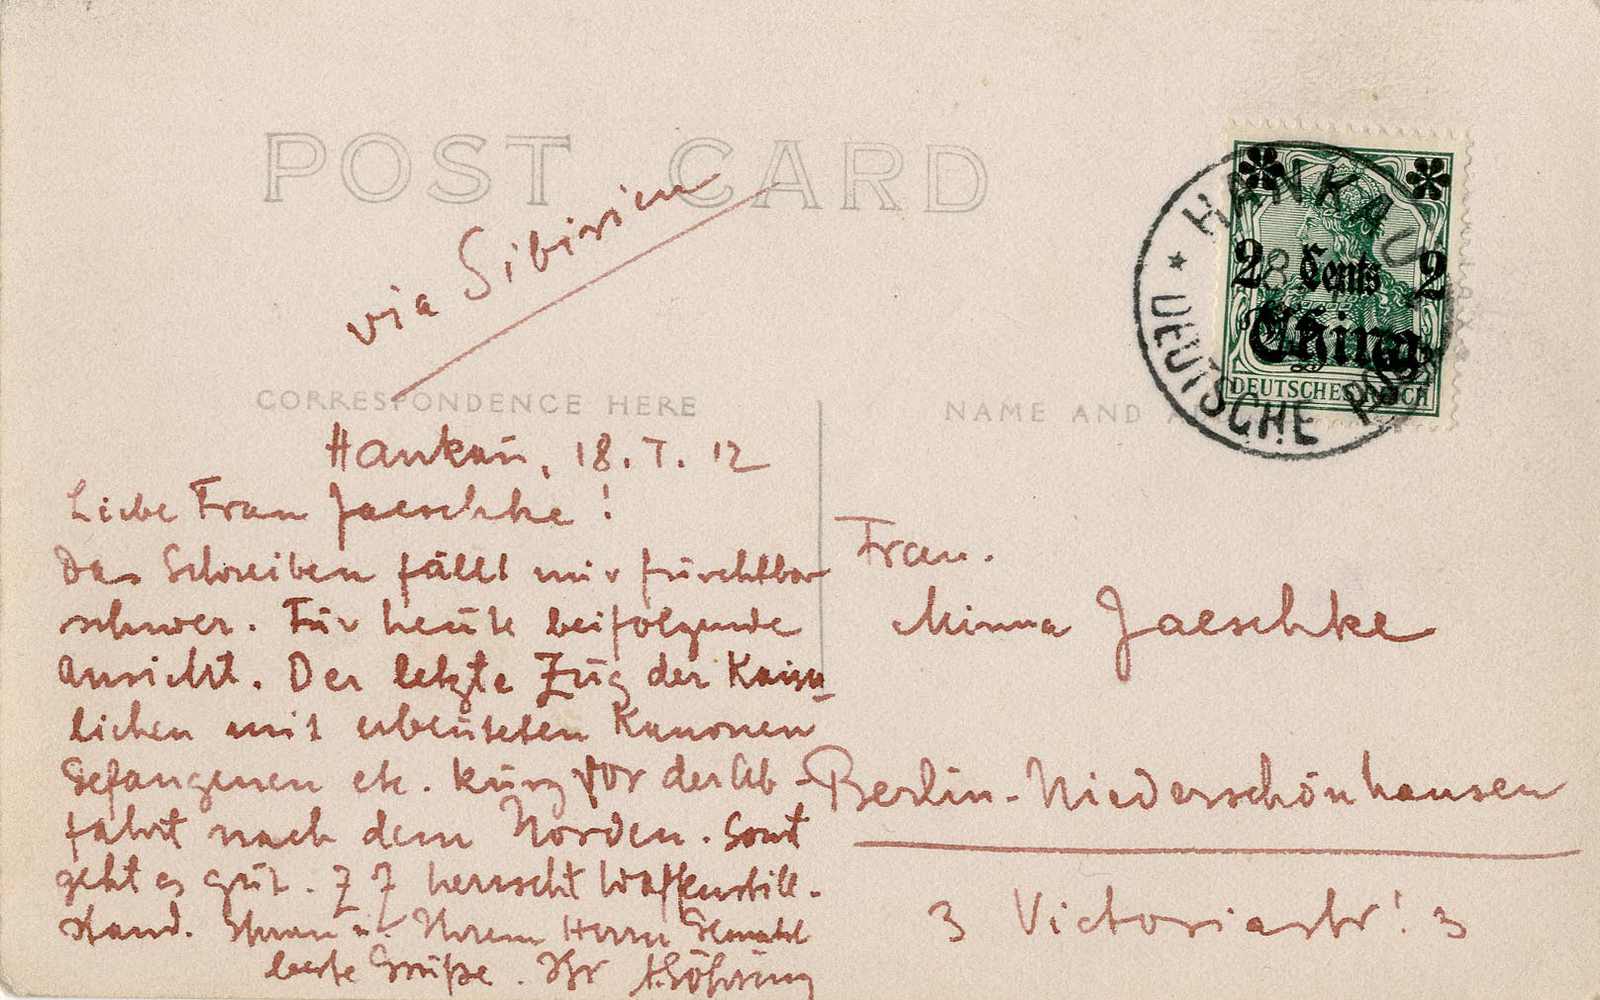 POST CARD
via Sibirien
CORRESPONDENCE HERE
NAME AND A
HANKAU
DEUTSCHE POST
2 Cents 2
China
DEUTSCHES REICH
Hankau, 18. I. 12
Liebe Frau Jaeschke!
Das Schreiben fällt mir furchtbar
schwer. Für heute beifolgende
Ansicht. Der letzte Zug der Kaiser-
lichen mit erbeuteten Kanonen
Gefangenen etc. kurz vor der Ab-
fahrt nach dem Norden. Sonst
geht es gut. Z Z herrscht Waffenstill-
stand. Ihnen u. Ihrem Herrn Gemahl
beste Grüße. Ihr
Frau.
Minna Jaeschke
Berlin-Niederschönhausen
3 Victoriastr! 3